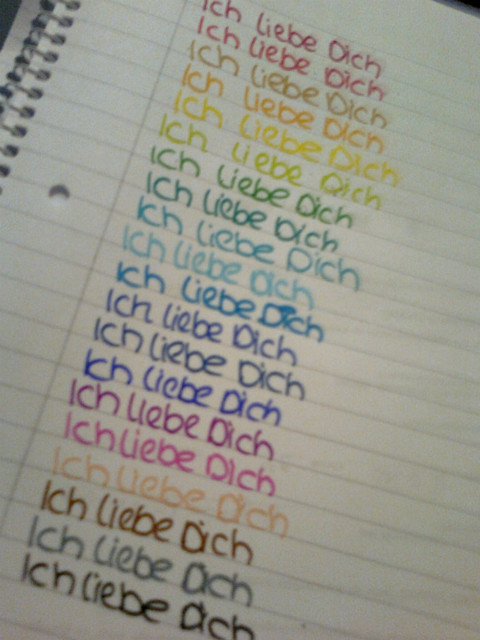 Ich liebe Dich
Ich liebe Dich
Ich liebe Dich
Ich liebe Dich
Ich liebe Dich
Ich liebe Dich
Ich liebe Dich
Ich liebe Dich
Ich liebe Dich
Ich liebe Dich
Ich liebe Dich
Ich liebe Dich
Ich liebe Dich
Ich liebe Dich
Ich liebe Dich
Ich liebe Dich
Ich liebe Dich
Ich liebe Dich
Ich liebe Dich
Ich liebe Dich